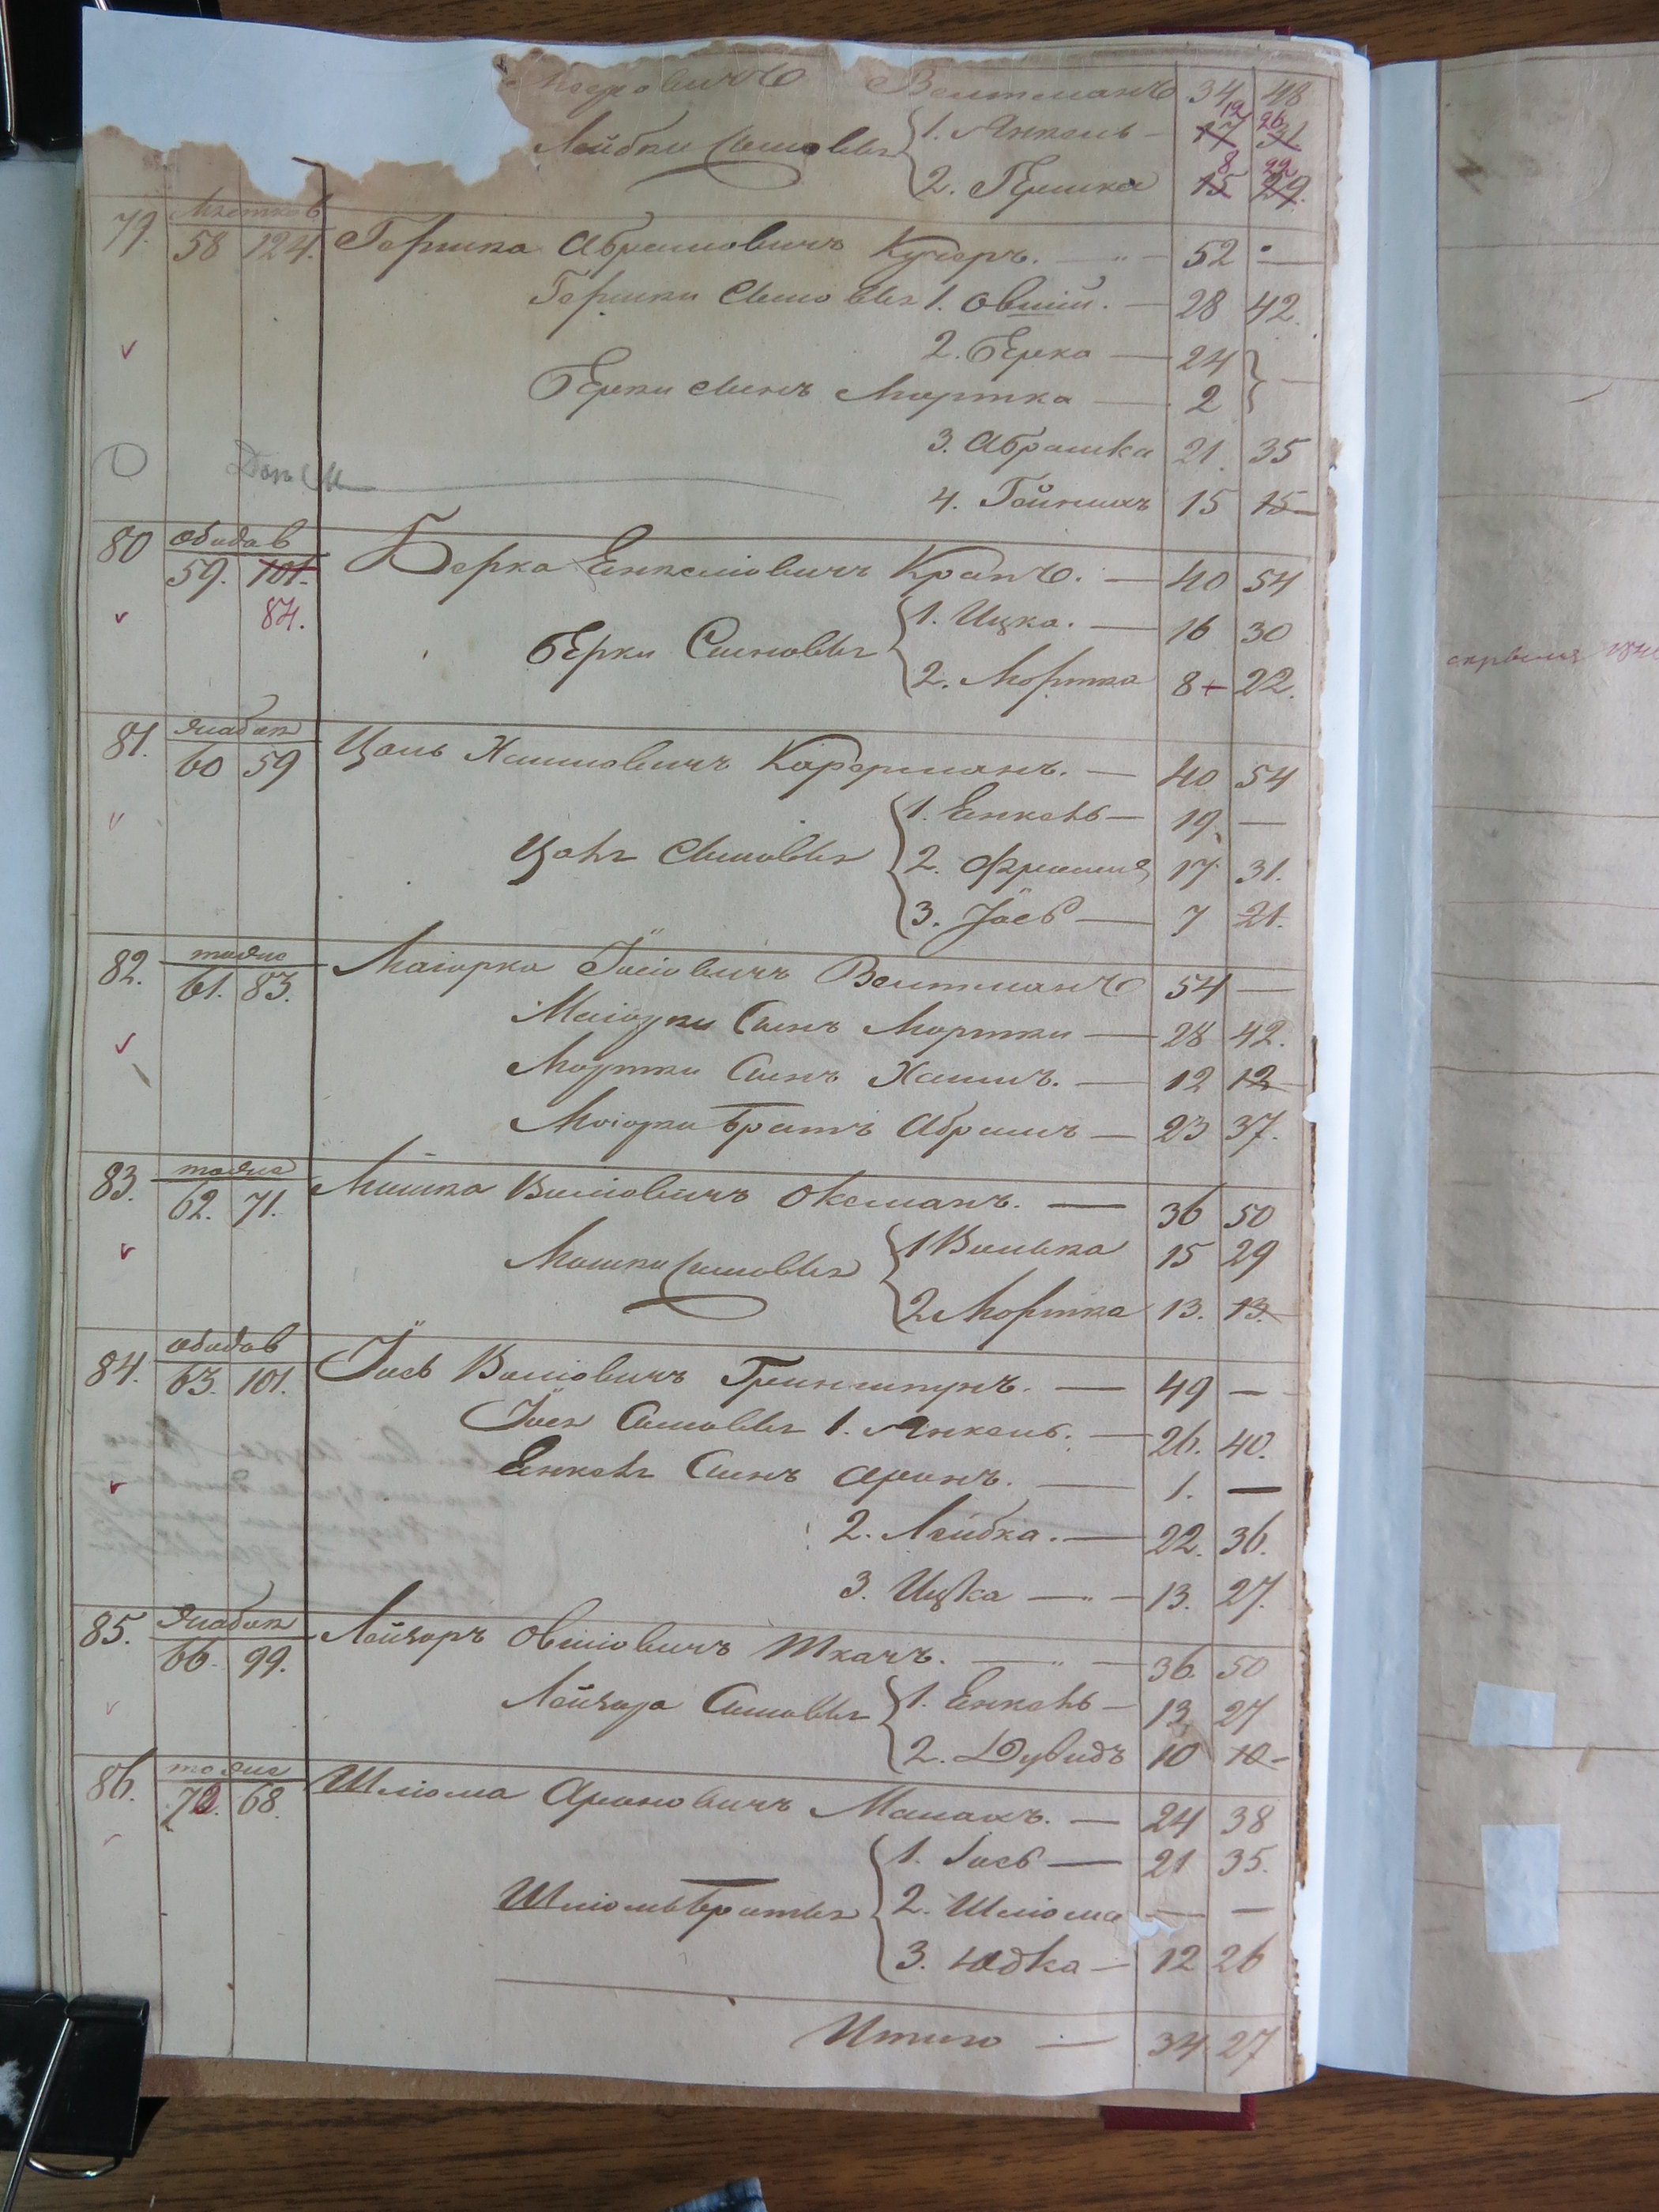 Вентманъ 34 48
Лейбки Сыновья 1. Янкель 17 12 31 26
2. Гершка 15 8 29 22
79. 58 124. Гершка Абрамовичъ Кучеръ. 52 —
Гершки Сыновья 1. Овшій. 28 42.
2. Берка 24
Берки Сынъ Мортка 2
3. Абрашка 21. 35
4. Гейнихъ 15 15
80 Обидов
59. 101. Берка Енкелiовичъ Крапъ. 40 54
84.
Берки Сыновья 1. Ицка. 16 30
2. Мортка 8 22.
81. 60 59 Цаль Хаимовичъ Каферманъ. 40 54
1. Енкель 19. —
Цаля Сыновья 2. Фроим 17 31.
3. Іось 7 21.
82. тоже
61. 83. Маіорка Іосіовичъ Вентманъ 54 —
Маіорки Сынъ Мортка 28 42.
Мортки Сынъ Хаимъ. 12 12
Маіорки братъ Абрамъ 23 37.
83. тоже
62. 71. Мошка Виліовичъ Оксманъ. 36 50
Мошки Сыновья 1 Волька 15 29
2 Мортка 13. 13.
84. Обидов
63. 101. Іось Воліовичъ Гриншпунъ. 49 —
Іося Сыновья 1. Янкель. 26. 40.
Енкеля Сынъ Аронъ. 1. —
2. Лейбка. 22. 36.
3. Ицка 13. 27.
85. 66. 99. Лейзоръ Овшіовичъ Ткачъ. 36. 50
Лейзора Сыновья 1. Енкель 13 27
2. Дувидъ 10 10
86. тоже
72. 68. Шліома Ароновичъ Малахъ. 24 38
1. Іось 21 35.
Шліомы братья 2. Шліома — —
3. Юдка 12 26
Итого 34 27